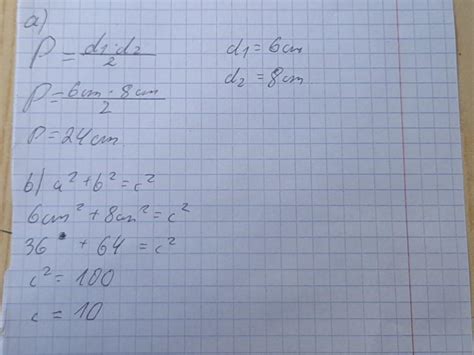 a)
P = d1·d2/2 d1 = 6cm
d2 = 8cm
P = 6cm · 8cm/2
P = 24cm
b) a² + b² = c²
6cm² + 8cm² = c²
36 + 64 = c²
c² = 100
c = 10